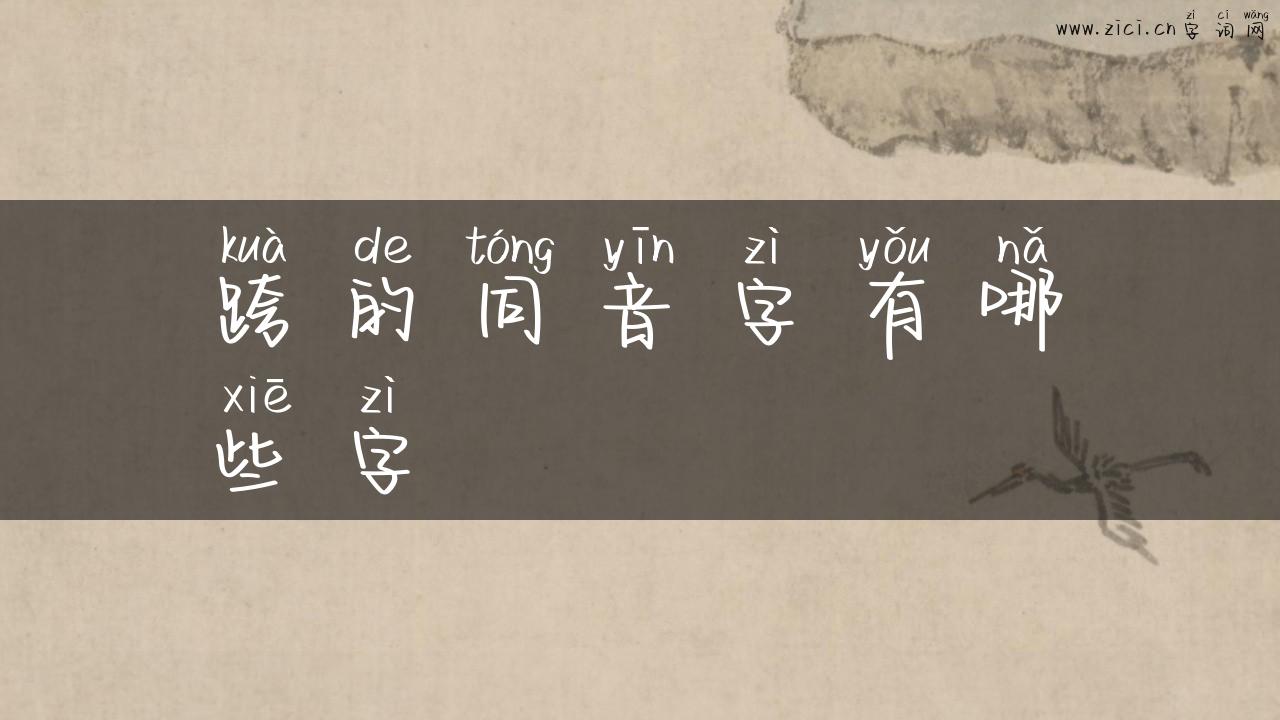 zì cí wǎng
www.zici.cn 字 词 网
kuà de tóng yīn zì yǒu nǎ
跨 的 同 音 字 有 哪
xiē zì
些 字